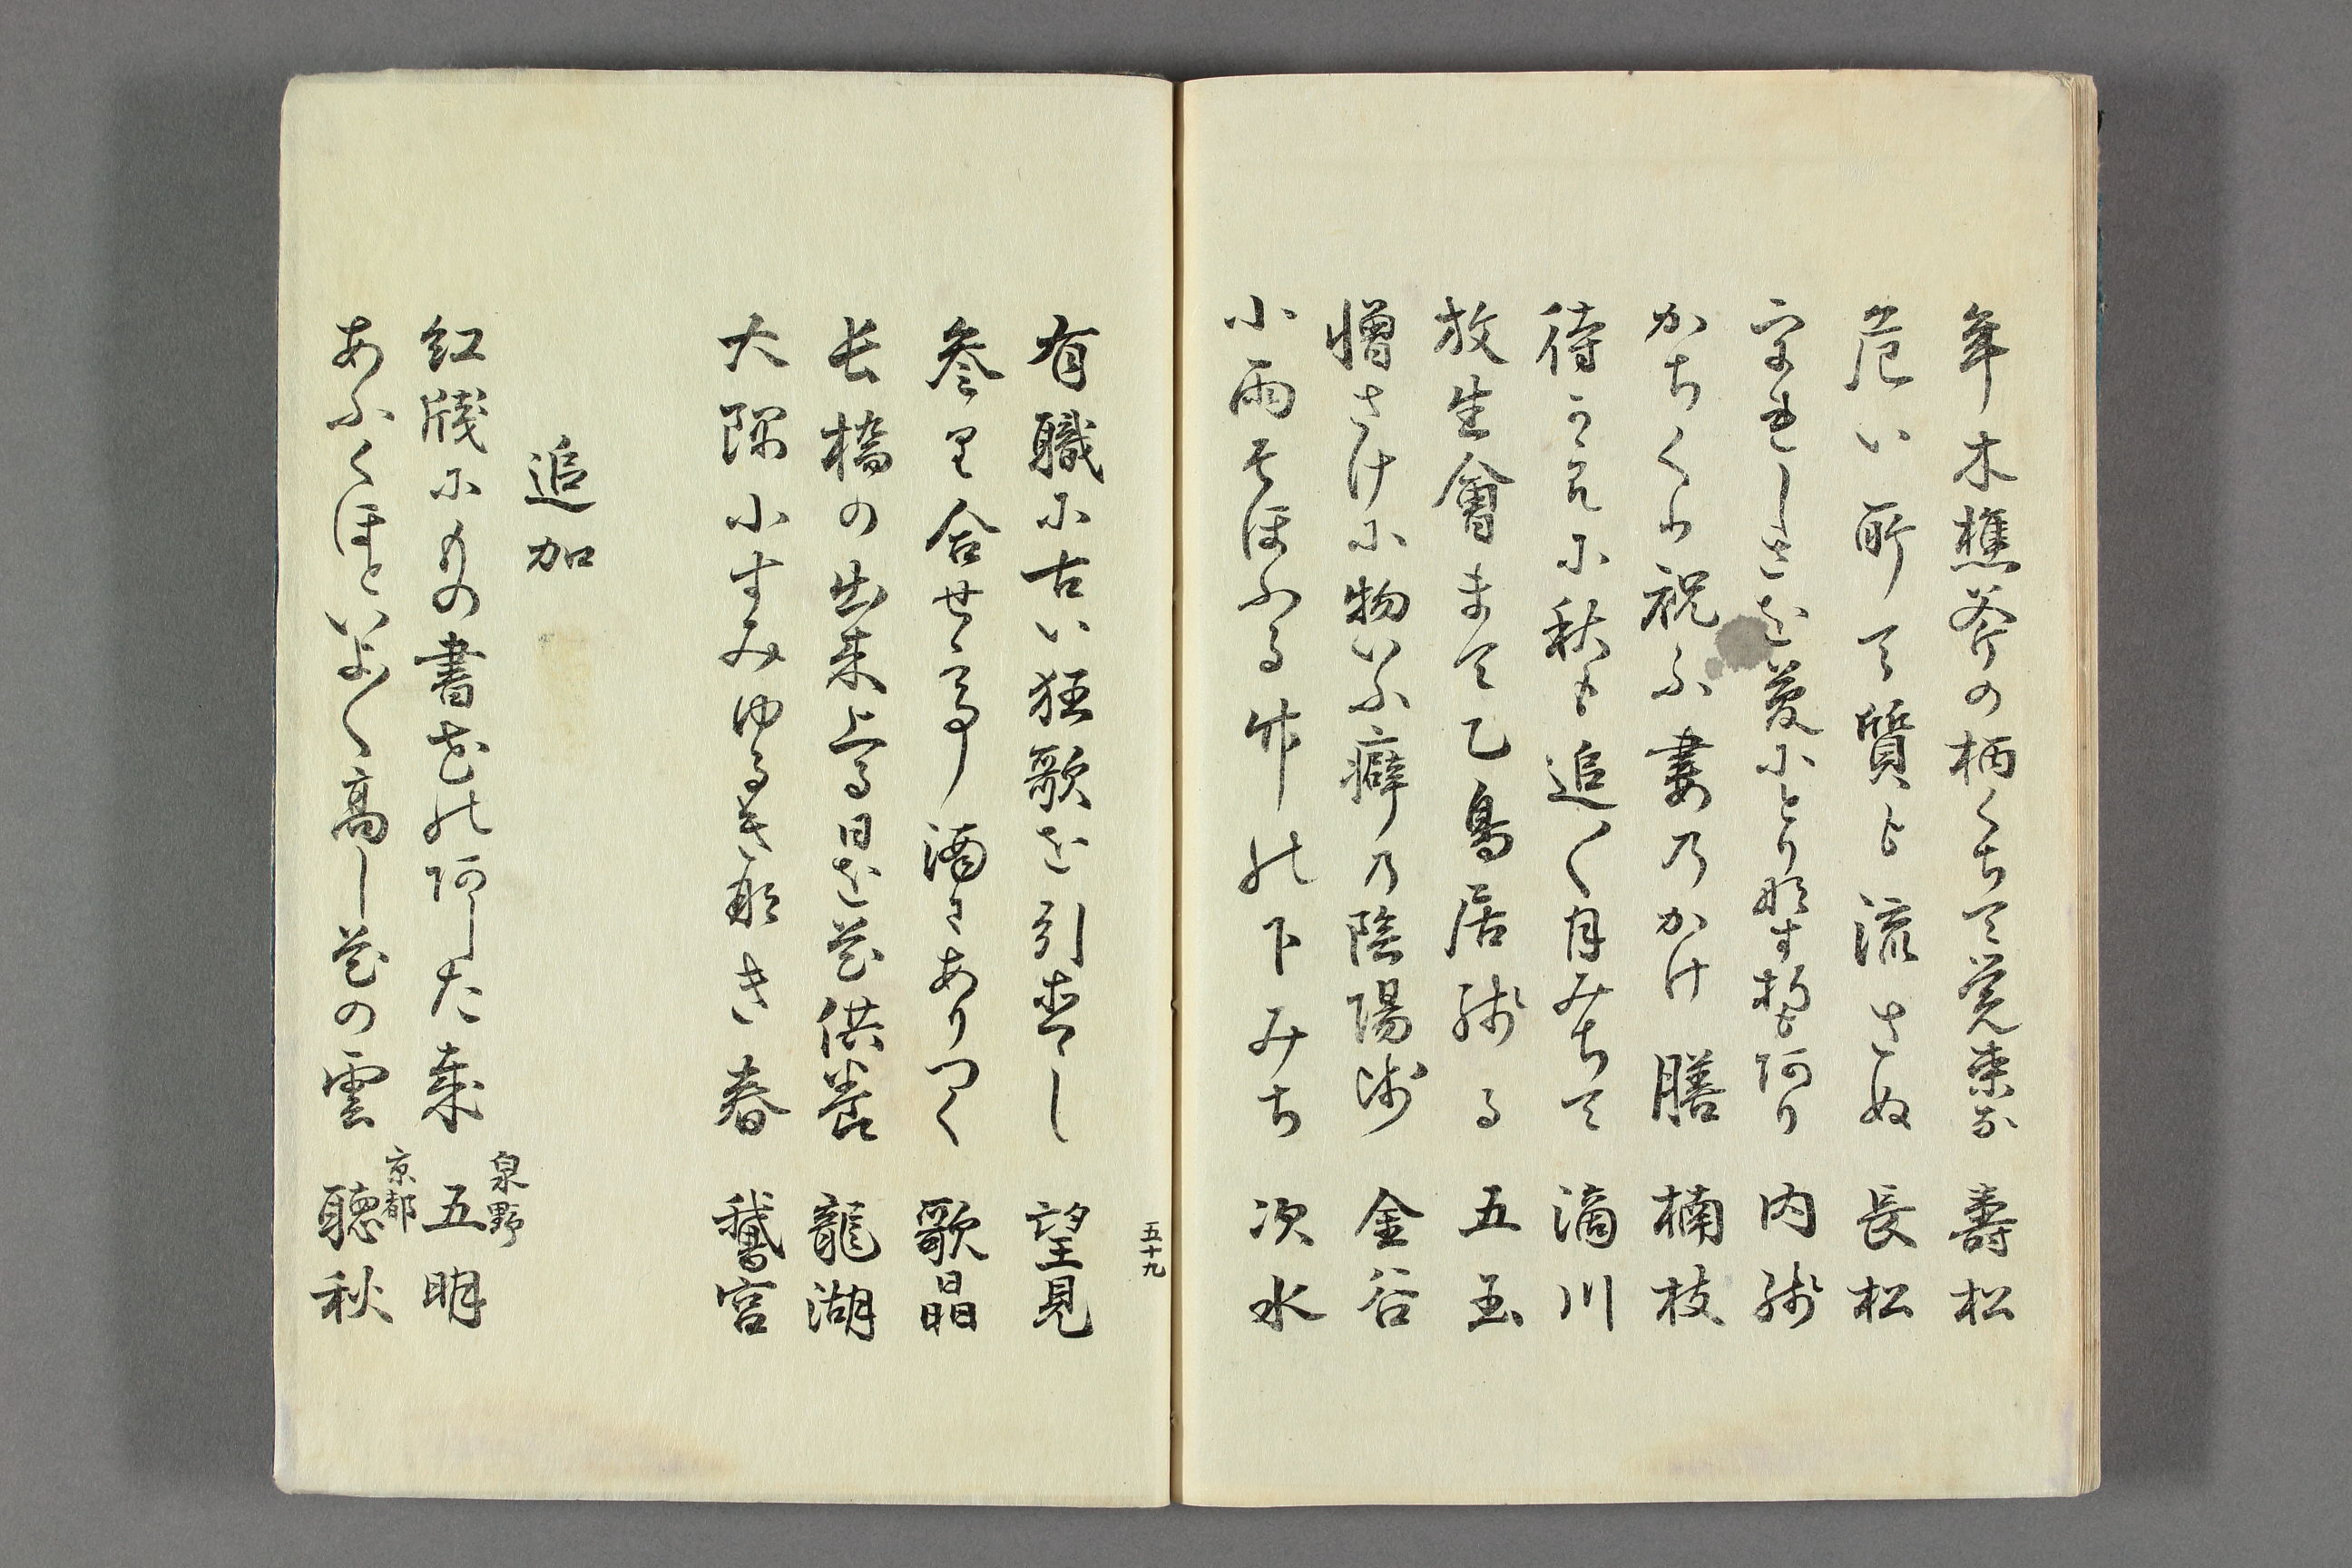 年木樵斧の柄くちて覚束な 壽松
危い所て質も流さぬ 長松
しさを夢にとりなす智もあり 内储
かちくり祝ふ妻のかけ膳 楠枝
待に秋も追〱月みちて 滴川
放生會まて乙鳥居残る 五玉
憎さけに物いふ癖の陰陽师 金谷
小雨そほふる竹の下みち 次水
五十九
有職に古い狂歌を引直し 望見
参り合せ酒さありつく 歌晶
長橋の出来上る日を花供養 龍湖
大隅小すみゆるきなき春 鵞宮
追加
紅牋にの書をのした来 泉野 五明
あふくほといよ〱高し花の雲 京都 聴秋